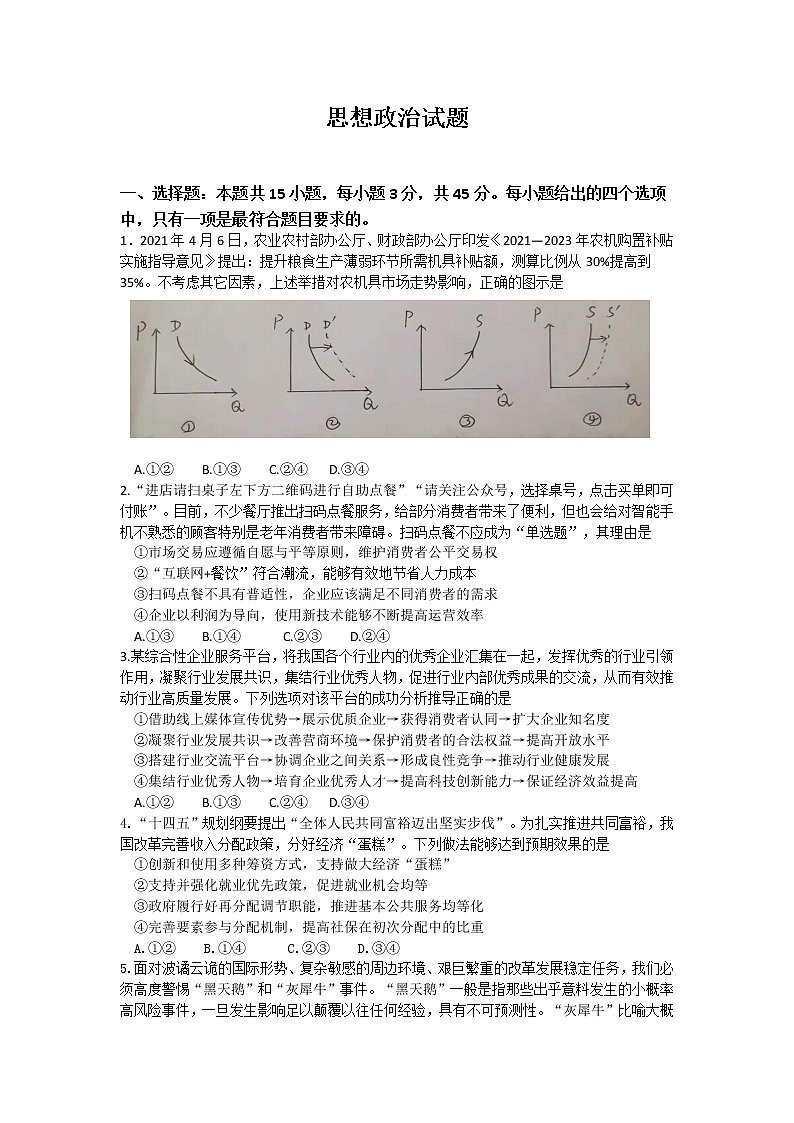 思想政治试题
一、选择题：本题共 15 小题，每小题 3 分，共 45 分。每小题给出的四个选项
中，只有一项是最符合题目要求的。
1．2021 年 4 月 6 日，农业农村部办公厅、财政部办公厅印发《2021—2023 年农机购置补贴
实施指导意见》提出：提升粮食生产薄弱环节所需机具补贴额，测算比例从 30%提高到
35%。不考虑其它因素，上述举措对农机具市场走势影响，正确的图示是
P D Q ①
P D D′ Q ②
P S Q ③
P S S′ Q ④
A.①② B.①③ C.②④ D.③④
2.“进店请扫桌子左下方二维码进行自助点餐”“请关注公众号，选择桌号，点击买单即可
付账”。目前，不少餐厅推出扫码点餐服务，给部分消费者带来了便利，但也会给对智能手
机不熟悉的顾客特别是老年消费者带来障碍。扫码点餐不应成为“单选题”，其理由是
①市场交易应遵循自愿与平等原则，维护消费者公平交易权
②“互联网+餐饮”符合潮流，能够有效地节省人力成本
③扫码点餐不具有普适性，企业应该满足不同消费者的需求
④企业以利润为导向，使用新技术能够不断提高运营效率
A.①③ B.①④ C.②③ D.②④
3.某综合性企业服务平台，将我国各个行业内的优秀企业汇集在一起，发挥优秀的行业引领
作用，凝聚行业发展共识，集结行业优秀人物，促进行业内部优秀成果的交流，从而有效推
动行业高质量发展。下列选项对该平台的成功分析推导正确的是
①借助线上媒体宣传优势→展示优质企业→获得消费者认同→扩大企业知名度
②凝聚行业发展共识→改善营商环境→保护消费者的合法权益→提高开放水平
③搭建行业交流平台→协调企业之间关系→形成良性竞争→推动行业健康发展
④集结行业优秀人物→培育企业优秀人才→提高科技创新能力→保证经济效益提高
A.①② B.①③ C.②④ D.③④
4.“十四五”规划纲要提出“全体人民共同富裕迈出坚实步伐”。为扎实推进共同富裕，我
国改革完善收入分配政策，分好经济“蛋糕”。下列做法能够达到预期效果的是
①创新和使用多种筹资方式，支持做大经济“蛋糕”
②支持并强化就业优先政策，促进就业机会均等
③政府履行好再分配调节职能，推进基本公共服务均等化
④完善要素参与分配机制，提高社保在初次分配中的比重
A.①② B.①④ C.②③ D.③④
5.面对波谲云诡的国际形势、复杂敏感的周边环境、艰巨繁重的改革发展稳定任务，我们必
须高度警惕“黑天鹅”和“灰犀牛”事件。“黑天鹅”一般是指那些出乎意料发生的小概率
高风险事件，一旦发生影响足以颠覆以往任何经验，具有不可预测性。“灰犀牛”比喻大概